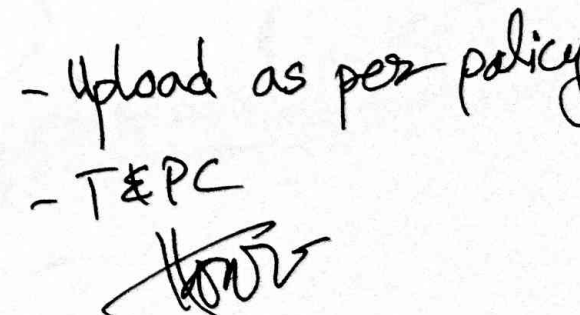 - Upload as per policy
- T&PC